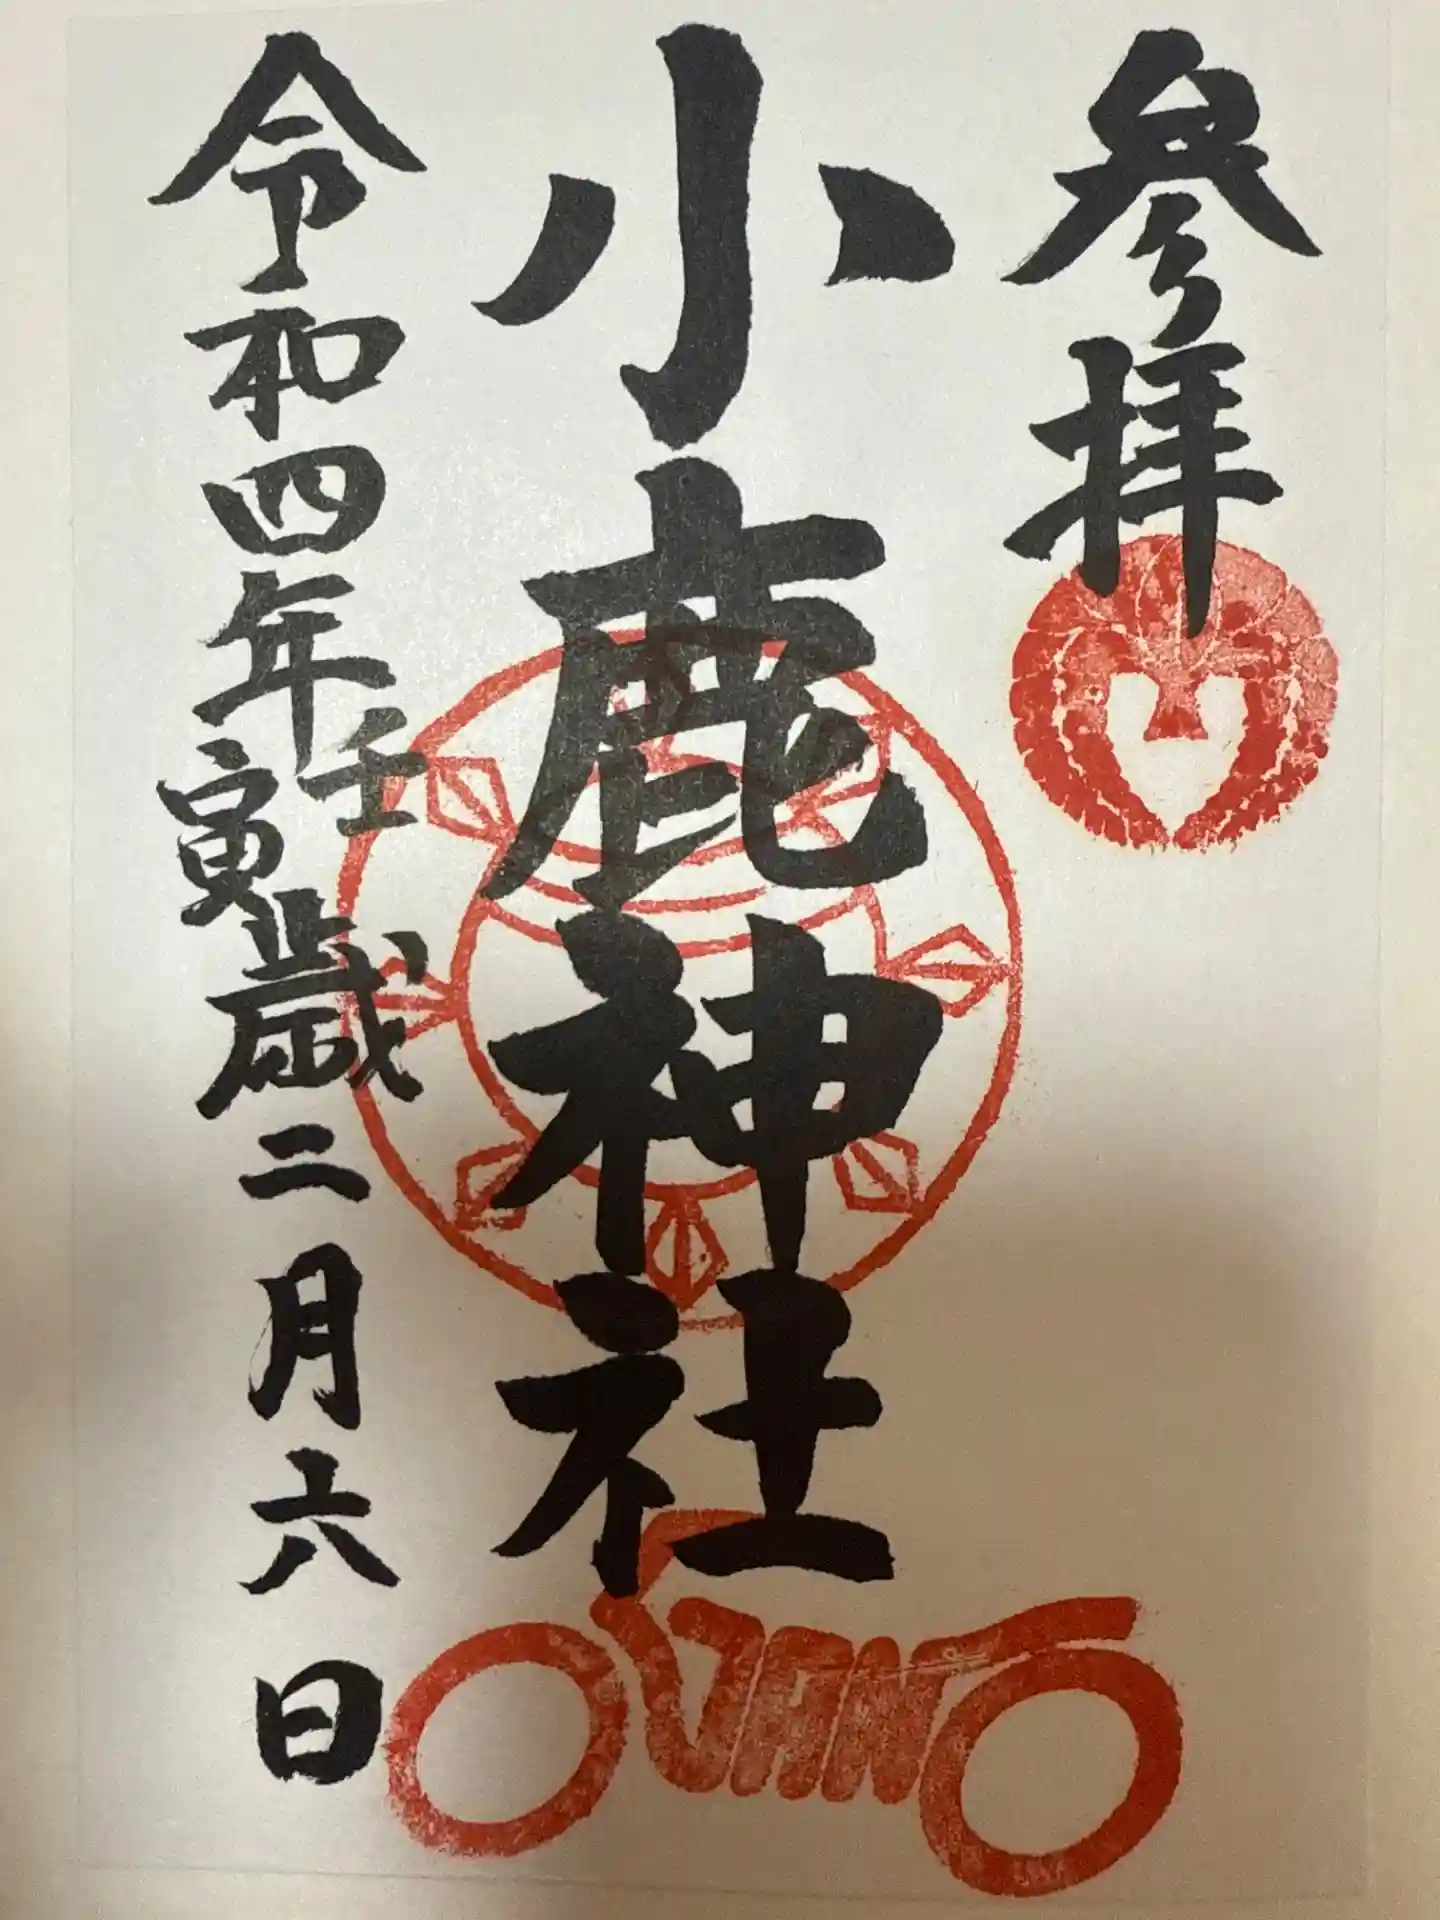 参拝
小鹿神社
令和四年壬寅歳二月六日